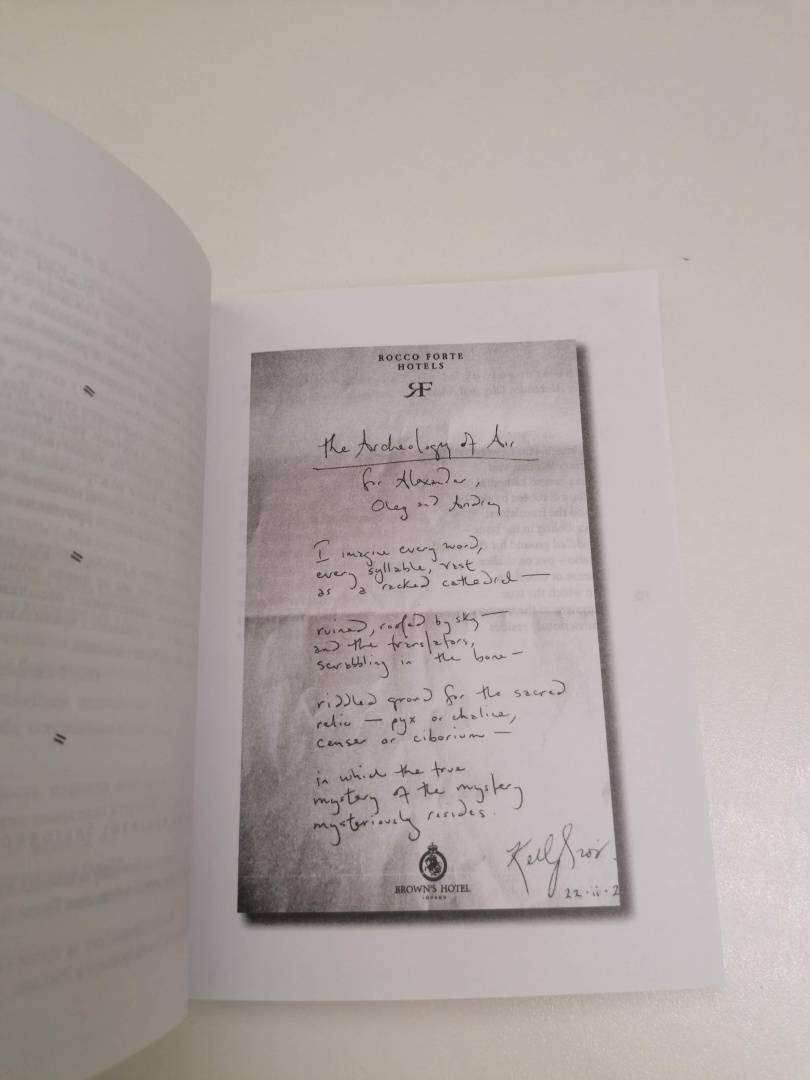 ROCCO FORTE
HOTELS
RF
the Archeology of Air
for Alexander,
Oleg and Andrey
I imagine every word,
every syllable, vast
as a racked cathedral —
ruined, roofed by sky —
and the translators,
scrabbling in the bone —
riddled ground for the sacred
relic — pyx or chalice,
censer or ciborium —
in which the true
mystery of the mystery
mysteriously resides.
22 · ii · 2
BROWN'S HOTEL
LONDON